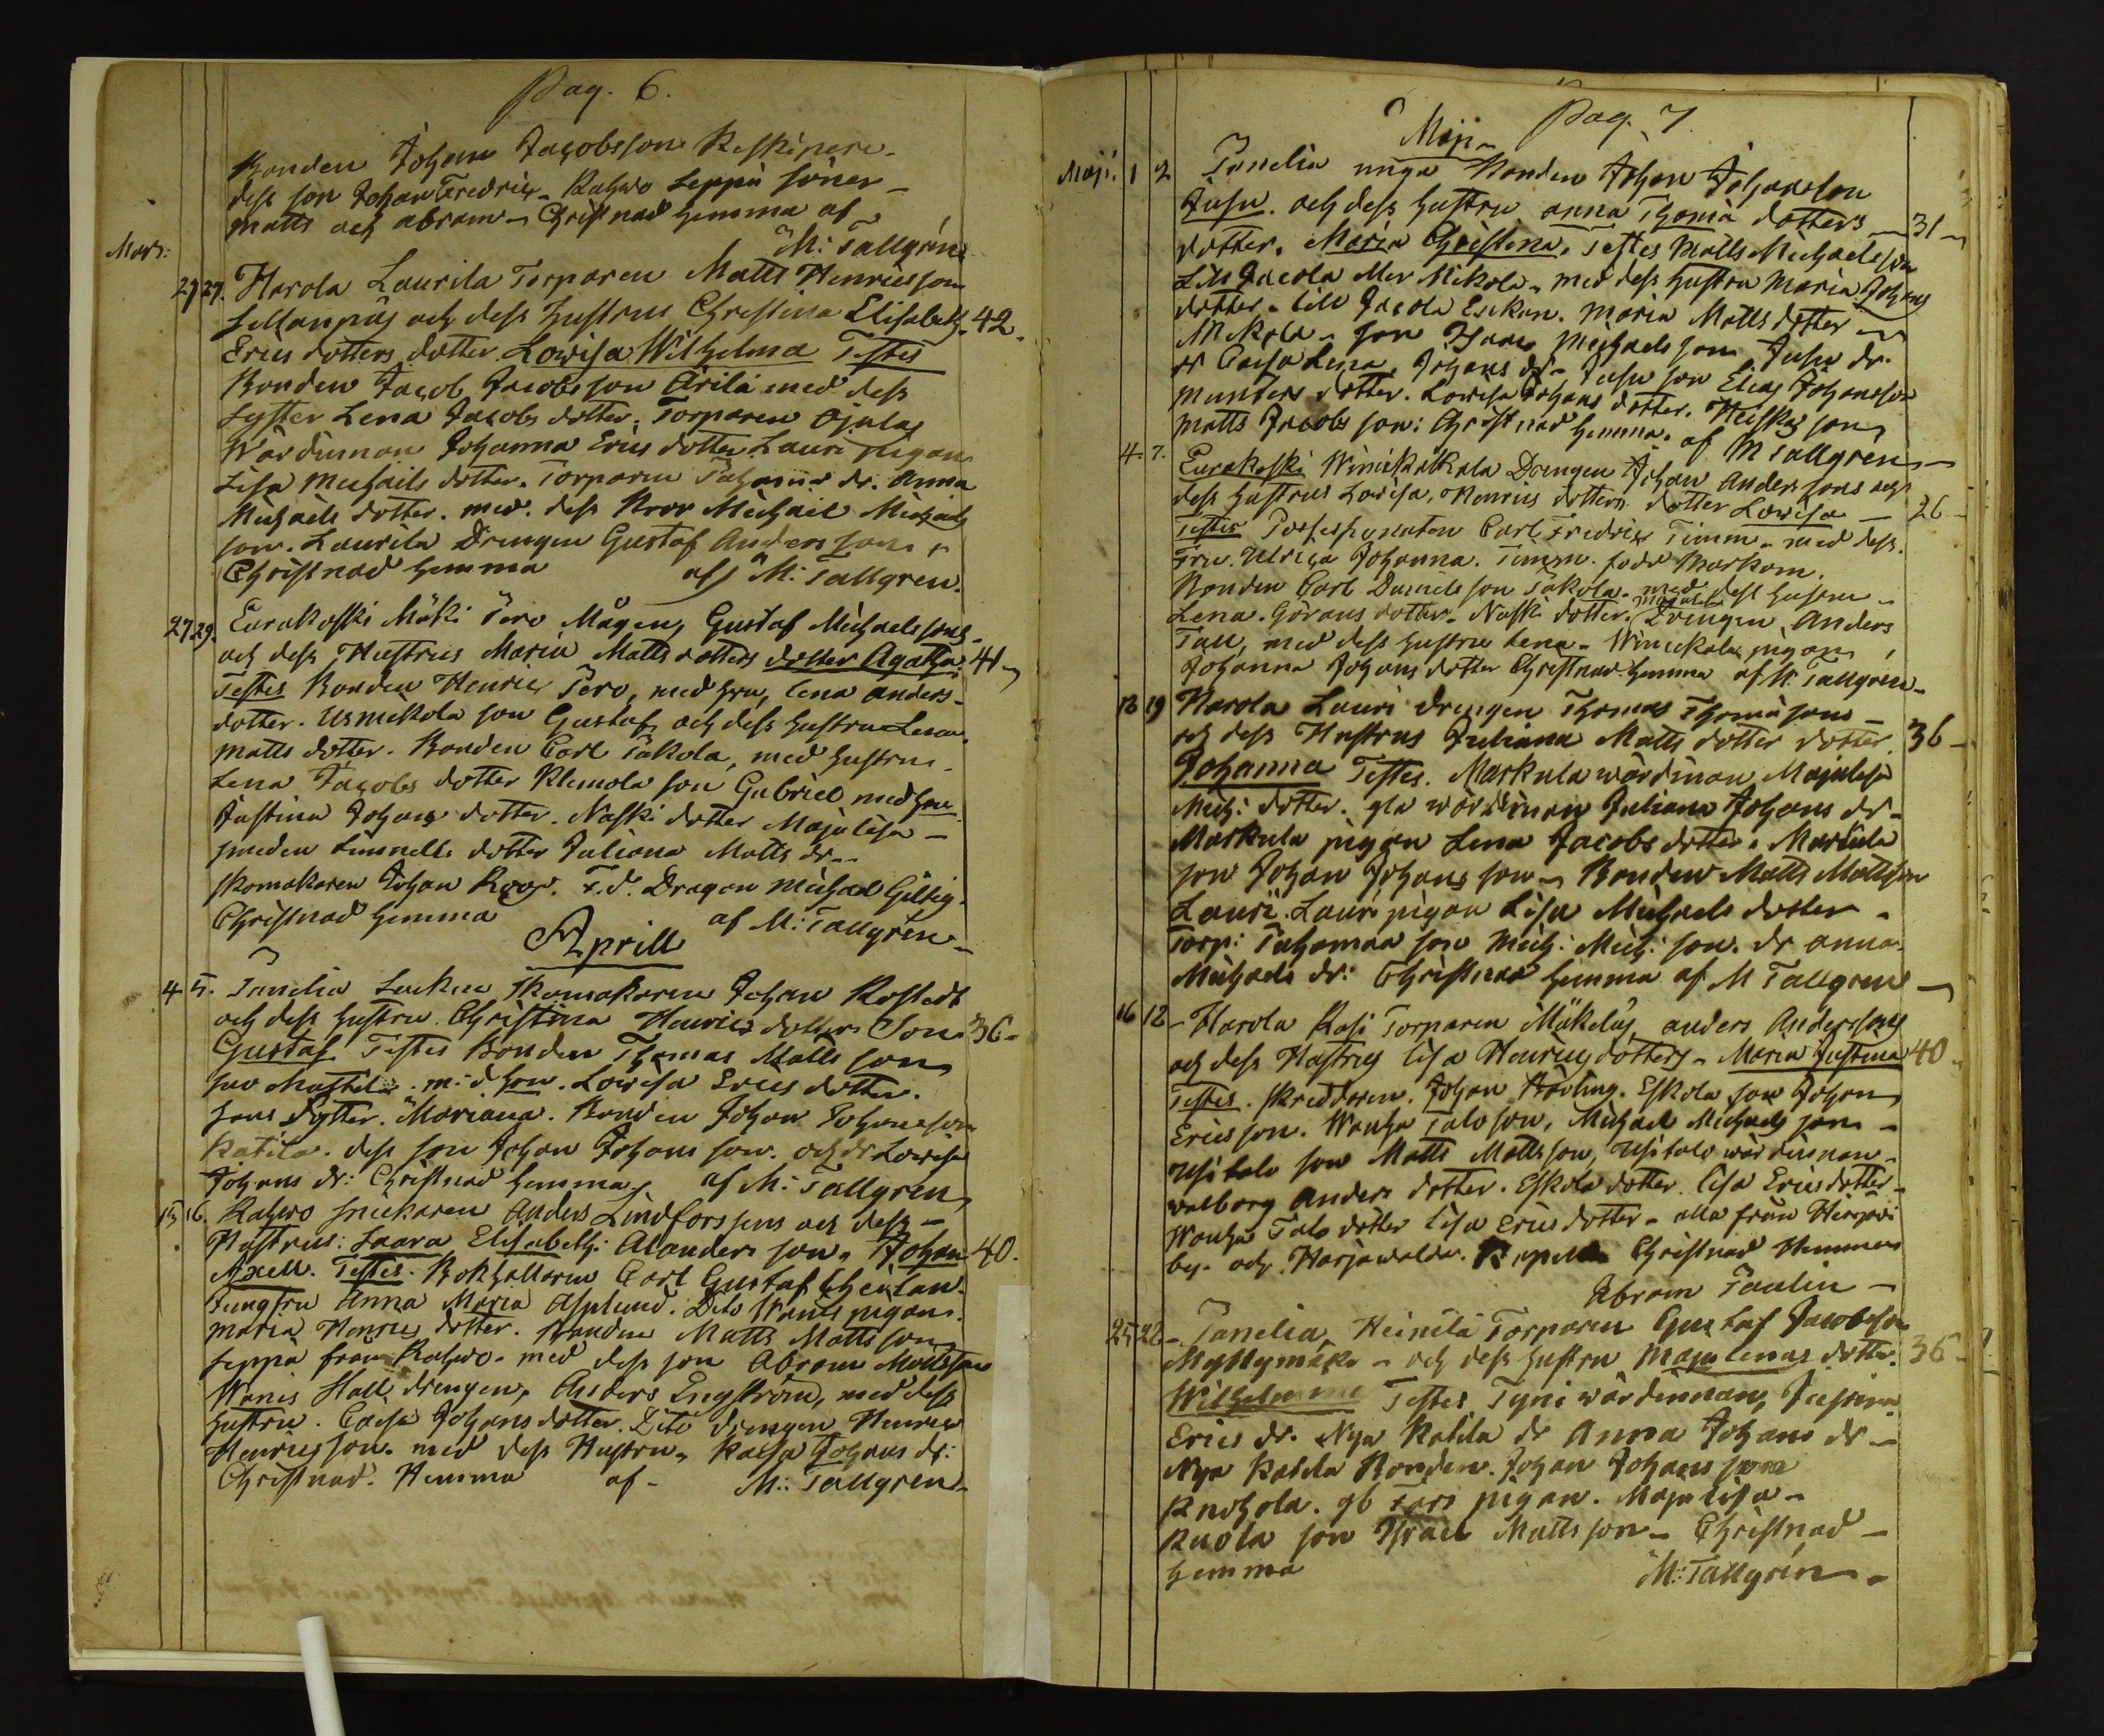 Pag. 6.
Bonden Johan Jacobsson Keskipere.
dess son Johan Fredric. Kahwo Seppä söner
Matts och Abram. Christnad hemma af
M: Tallgren
Mars:
27 29. Harola Laurila Torparen Matts Henricsson
och dess hustrus Christina Elisabeth. 42.
Erics dotters dotter Lowisa Wilhelmina Testes
Bonden Jacob Jacobsson Ärilä med dess
syster Lena Jacobs dotter. Torparen Ojalas
Wärdinnan Johanna Erics dotter. Lauri pigan
Lisa Michaels dotter. Torparen Tuhomaa dr. Anna
Michaels dotter. med dess Bror Michael Michaels
son. Laurila Drengen Gustaf Andersson
Christnad hemma af M: Tallgren.
27 29. Eurakoski Mäki Pero Mågen Gustaf Michaelssons
och dess Hustrus Maria Matts dotters dotter Agatha. 41
Testes Bonden Henric Pero, med hru, Lena Anders
dotter. Usmikola son Gustaf och dess hustru Lena
Matts dotter. Bonden Carl Täkola, med hustru
Lena Jacobs dotter Klemola son Gabriel med hru
Justina Johans dotter. Naski dotter Majalisa
smeden Linnells dotter Juliana Matts dr.
skomakaren Johan Roos. F.d. Dragon Michael Gillig.
Christnad hemma af M: Tallgren
Aprill
4 5. Panelia Lucken Skomakaren Johan Rostedt
och dess hustru Christina Henrics dotters Son 36
Gustaf Testes Bonden Thomas Mattsson
med hru. Lowisa Erics dotter.
hans Syster. Mariana. Bonden Johan Johansson
Katila. dess son Johan Johansson. och dr Lowisa
Johans dr: Christnad hemma af M: Tallgren
15 16. Kahwo snickaren Anders Lindforssons och dess
Hustrus: Saara Elisabeth: Alanders son. Johan 40.
Axell. Testes. Bokhållaren Carl Gustaf
Jungfru Anna Maria Asplund. Dito Wanis pigan.
Maria Henrics dotter. Bonden Matts Mattsson
Seppä från Kahwo. med dess son Abram Mattsson
Wanis Hall drengen, Anders Engström, med dess
hustru. Caisa Johans dotter. Dito drengen Henric
Henricsson. med dess Hustru. Kaisa Johans dr:
Christnad. Hemma af M: Tallgren
Pag. 7
Maji
Maji. 1 2 Panelia unga Bonden Johan Johansson
Jusu. och dess hustru Anna Thomä dotters 31
dotter. Maria Christina. Testes Matts Michaelsson
Lill Jacola eller Mikola. med dess hustru Maria Johans
dotter. Lill Jacola Enkan. Maria Matts dotter
Mikola son Isaac Michaelsson Jusu dr.
dr Caisa Lena, Johans dr. Jusu son Elias Johansson
Munters dotter. Lowisa Johans dotter. Heiskas son
Matts Jacobsson: Christnad hemma. af M Tallgren
4. 7. Eurakoski Winickalkala Drengen Johan Anderssons och
dess hustrus Lowisa, Henrics dotters dotter Lowisa 26
Testes Possessionaten Carl Fredric Timm. med dess
Fru. Ulrica Johanna. Timm. född Workom.
Bonden Carl Danielsson Täkola. med dess hustru
Lena. Görans dotter. Naski dotter. Majalisa Drengen Anders
Tall, med dess hustru Lena. Winickala pigan
Johanna Johans dotter Christnad hemma af M. Tallgren
18 19 Harola Lauri drengen Thomas Thomäsons
och dess Hustrus Juliana Matts dotter dotter 36
Johanna Testes. Markula wärdinnan Majalisa
Mich: dotter. gla wärdinnan Juliana Johans dr.
Markula pigan Lena Jacobs dotter. Markula
son Johan Johansson. Bonden Matts Mattsson
Lauri. Lauri pigan Lisa Michaels dotter.
Torp: Tuhomaa son Mich: Mich: son. dr Anna
Michaels dr: Christnad hemma af M Tallgren
16 18 Harola Kasi Torparen Mäkeläs Anders Anderssons
och dess Hustrus Lisa Henrics dotters. Maria Justina 40
Testes. skreddaren. Johan Rödling. Eskola son Johan
Ericsson. Wanha Talo son, Michael Michaelsson
Usitalo son Matts Mattsson, Usitalo wärdinnan
Walborg Anders dotter. Eskola dotter. Lisa Erics dotter
Wanha Talo dotter Lisa Erics dotter. alla från
by. och Harjawalda. Christnad Hemma
Abram Paulin
25 28 Panelia Heinilä Torparen Gustaf Jacobsson
Myllymäki och dess hustru Majalenas dotter. 36
Wilhelmina Testes Tyni wärdinnan Justina
Erics dr. Nya Kahila dr Anna Johans dr
Nya Kahila Bonden. Johan Johansson
Knohola. gb Fars pigan. Majalisa
Kuola son Israel Mattsson. Christnad
hemma M: Tallgren